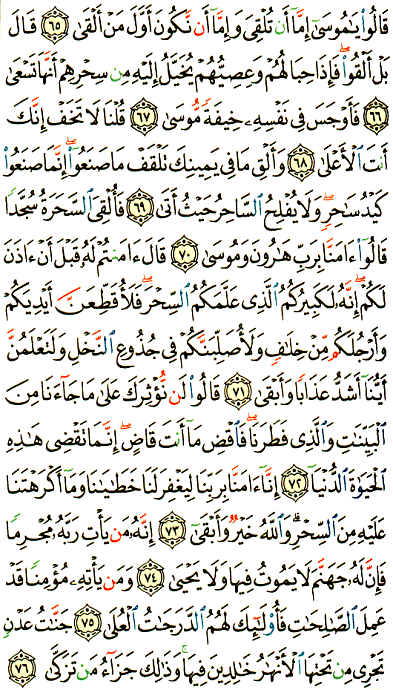 قَالُوا۟ يَـٰمُوسَىٰٓ إِمَّآ أَن تُلْقِىَ وَإِمَّآ أَن نَّكُونَ أَوَّلَ مَنْ أَلْقَىٰ ٦٥ قَالَ
بَلْ أَلْقُوا۟ ۖ فَإِذَا حِبَالُهُمْ وَعِصِيُّهُمْ يُخَيَّلُ إِلَيْهِ مِن سِحْرِهِمْ أَنَّهَا تَسْعَىٰ
٦٦ فَأَوْجَسَ فِى نَفْسِهِۦ خِيفَةً مُّوسَىٰ ٦٧ قُلْنَا لَا تَخَفْ إِنَّكَ
أَنتَ ٱلْأَعْلَىٰ ٦٨ وَأَلْقِ مَا فِى يَمِينِكَ تَلْقَفْ مَا صَنَعُوٓا۟ ۖ إِنَّمَا صَنَعُوا۟
كَيْدُ سَـٰحِرٍ ۖ وَلَا يُفْلِحُ ٱلسَّاحِرُ حَيْثُ أَتَىٰ ٦٩ فَأُلْقِىَ ٱلسَّحَرَةُ سُجَّدًا
قَالُوٓا۟ ءَامَنَّا بِرَبِّ هَـٰرُونَ وَمُوسَىٰ ٧٠ قَالَ ءَامَنتُمْ لَهُۥ قَبْلَ أَنْ ءَاذَنَ
لَكُمْ ۖ إِنَّهُۥ لَكَبِيرُكُمُ ٱلَّذِى عَلَّمَكُمُ ٱلسِّحْرَ ۖ فَلَأُقَطِّعَنَّ أَيْدِيَكُمْ
وَأَرْجُلَكُم مِّنْ خِلَـٰفٍ وَلَأُصَلِّبَنَّكُمْ فِى جُذُوعِ ٱلنَّخْلِ وَلَتَعْلَمُنَّ
أَيُّنَآ أَشَدُّ عَذَابًا وَأَبْقَىٰ ٧١ قَالُوا۟ لَن نُّؤْثِرَكَ عَلَىٰ مَا جَآءَنَا مِنَ
ٱلْبَيِّنَـٰتِ وَٱلَّذِى فَطَرَنَا ۖ فَٱقْضِ مَآ أَنتَ قَاضٍ ۖ إِنَّمَا تَقْضِى هَـٰذِهِ
ٱلْحَيَوٰةَ ٱلدُّنْيَآ ٧٢ إِنَّآ ءَامَنَّا بِرَبِّنَا لِيَغْفِرَ لَنَا خَطَـٰيَـٰنَا وَمَآ أَكْرَهْتَنَا
عَلَيْهِ مِنَ ٱلسِّحْرِ ۗ وَٱللَّهُ خَيْرٌ وَأَبْقَىٰٓ ٧٣ إِنَّهُۥ مَن يَأْتِ رَبَّهُۥ مُجْرِمًا
فَإِنَّ لَهُۥ جَهَنَّمَ لَا يَمُوتُ فِيهَا وَلَا يَحْيَىٰ ٧٤ وَمَن يَأْتِهِۦ مُؤْمِنًا قَدْ
عَمِلَ ٱلصَّـٰلِحَـٰتِ فَأُو۟لَـٰٓئِكَ لَهُمُ ٱلدَّرَجَـٰتُ ٱلْعُلَىٰ ٧٥ جَنَّـٰتُ عَدْنٍ
تَجْرِى مِن تَحْتِهَا ٱلْأَنْهَـٰرُ خَـٰلِدِينَ فِيهَا ۚ وَذَٰلِكَ جَزَآءُ مَن تَزَكَّىٰ ٧٦